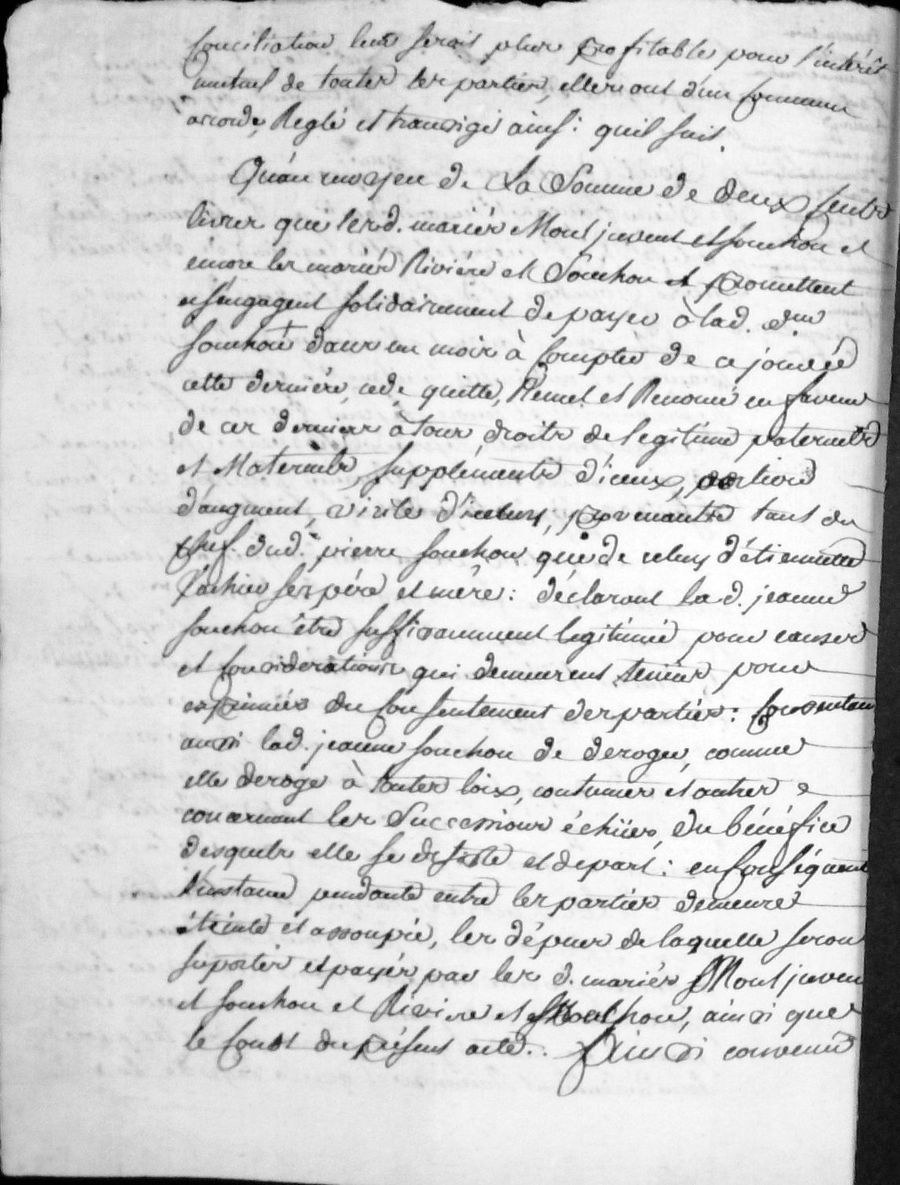 conciliation leur serois plus profitable pour l'intérêt
mutuel de toutes les parties, elles ont d'un commun
accorde, Reglé et transigé ainsi: quil suit.
Qu'au moyen de La Somme de deux Cents
livres que lesd. mariés Montjuvent et souchon et
encore les mariés Riviére et Souchon et promettent
et s'engagent solidairement de payer à lad. 
souchon dans un mois à Compter de ce jour
cette derniére, cede quitte, Remet et Renonce en faveur
de ces derniers à tous droits de legitime paternels
et Maternels, suppléments d'iceux, portions
d'augment, virile d'iceluy, provenants tant du
chef dud. pierre souchon que de celuy d'étiennette
ses père et mère: déclarant lad. jeanne
souchon être suffisamment legitimée pour causes
et considerations qui demeurent tenües pour
exprimées du consentement des parties: Consentant
aussi lad. jeanne souchon de deroger, comme
elle deroge à toutes loix, coutumes et autres
concernant les Successions échües, du bénéfice
desquels elle se desiste et depart: en Conséquent
l'instance pendante entre les parties demeure
éteinte et assoupie, les dépens de laquelle seron
suportés et payés par les d. mariés Montjuven
et souchon et Riviere et Souchon, ainsi que
le Coust du présent acte.. Ainsi convenu